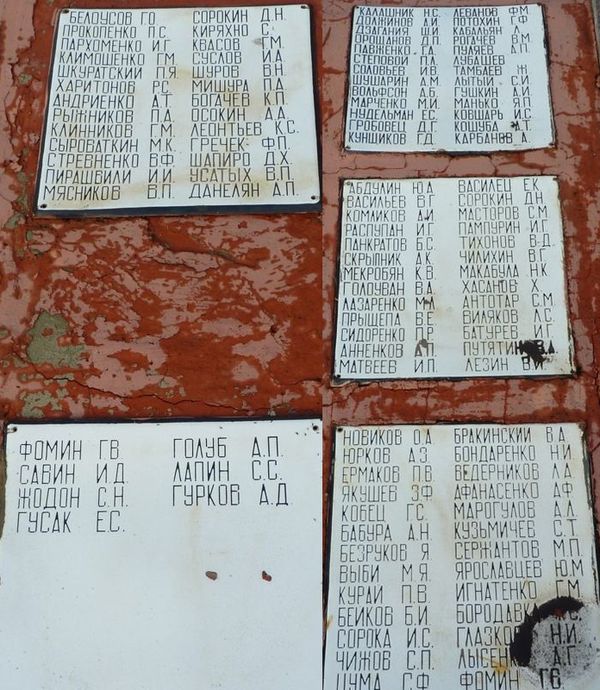 БЕЛОУСОВ Г.О. СОРОКИН Д.Н.
ПРОКОПЕНКО П.С. КИРЯХНО С.
ПАРХОМЕНКО И.Г. КВАСОВ Г.М.
КЛИМОЩЕНКО Г.М. СУСЛОВ И.А.
ШКУРАТСКИЙ П.Я. ШУРОВ В.Н.
ХАРИТОНОВ Р.С. МИЩУРА П.А.
АНДРИЕНКО А.Т. БОГАЧЕВ К.П.
РЫЖНИКОВ П.А. ОСОКИН А.А.
КЛИННИКОВ Г.М. ЛЕОНТЬЕВ К.С.
СЫРОВАТКИН М.К. ГРЕЧЕК Ф.П.
СТРЕВНЕНКО В.Ф. ШАПИРО Д.Х.
ПИРАШВИЛИ И.И. УСАТЫХ В.П.
МЯСНИКОВ В.П. ДАНЕЛЯН А.П.
КАЛАШНИК Н.С. ЛЕВАНОВ Ф.М.
ДОЛЖИНОВ А.И. ПОТОХИН Г.Ф.
ДЗАГАНИЯ Ш.И. КАБАЛЬЯН А.
ОРОШАНОВ Д.П. РОГАЧЕВ В.М.
ПАВЛЕНКО Г.А. ПУЛЯЕВ А.П.
СТЕПОВОЙ П.А. ЛУБАЩЕВ
СОЛОВЬЕВ И.В. ТАМБАЕВ Ж
ШУШАРИН А.А. ЛЫТЫЙ С.И.
ВОЛЬФСОН А.Б. ГУШКИН А.И.
МАРЧЕНКО М.И. МАНЬКО Я.П.
НУДЕЛЬМАН Е.С. КОВШАРЬ И.С.
ГРОБОВЕЦ Д.Г. КОШУБА А.Т.
КУНШИКОВ Г.Д. КАРБАНОВ А.
АБДУЛИН Ю.А. ВАСИЛЕЦ Е.К.
ВАСИЛЬЕВ В.Г. СОРОКИН Д.Н.
КОМЛИКОВ А.И. МАСТОРОВ С.М.
РАСПУПАН И.Г. ПАМПУРИН И.Г.
ПАНКРАТОВ Б.С. ТИХОНОВ В.Д.
СКРЫПНИК А.К. ЧИЛИХИН В.Г.
МЕКРОБЯН К.В. МАКАБУЛА Н.К.
ГОЛОУВАН В.А. ХАСАНОВ Х.
ЛАЗАРЕНКО М.Н. АНТОТАР С.М.
ПРЫЩЕПА В.Е. ВИЛЯКОВ Л.С.
СИДОРЕНКО П.Р. БАТУРЕВ И.Г.
АННЕНКОВ А.П. ПУТЯТИН
МАТВЕЕВ И.П. ЛЕЗИН В.И.
ФОМИН Г.В. ГОЛУБ А.П.
САВИН И.Д. ЛАПИН С.С.
ЖОДОН С.Н. ГУРКОВ А.Д
ГУСАК Е.С.
НОВИКОВ О.А. БРАКИНСКИЙ В.А.
ЮРКОВ А.З. БОНДАРЕНКО Н.И.
ЕРМАКОВ П.В. ВЕДЕРНИКОВ Л.А.
ЯКУШЕВ З.Ф. АФАНАСЕНКО А.Ф
КОБЕЦ Г.С. МАРОГУЛОВ А.Л.
БАБУРА А.Н. КУЗЬМИЧЕВ С.Т.
БЕЗРУКОВ Я. СЕРЖАНТОВ М.П.
ВЫБИ М.Я. ЯРОСЛАВЦЕВ Ю.М
КУРАЙ П.В ИГНАТЕНКО Г.М.
БЕЙКОВ Б.И. БОРОДАВКА
СОРОКА И.С. ГЛАЗКОВ Н.И.
ЧИЖОВ С.П. ЛЫСЕНКО А.Г.
ЦУМА С.Ф ФОМИН Г.В.